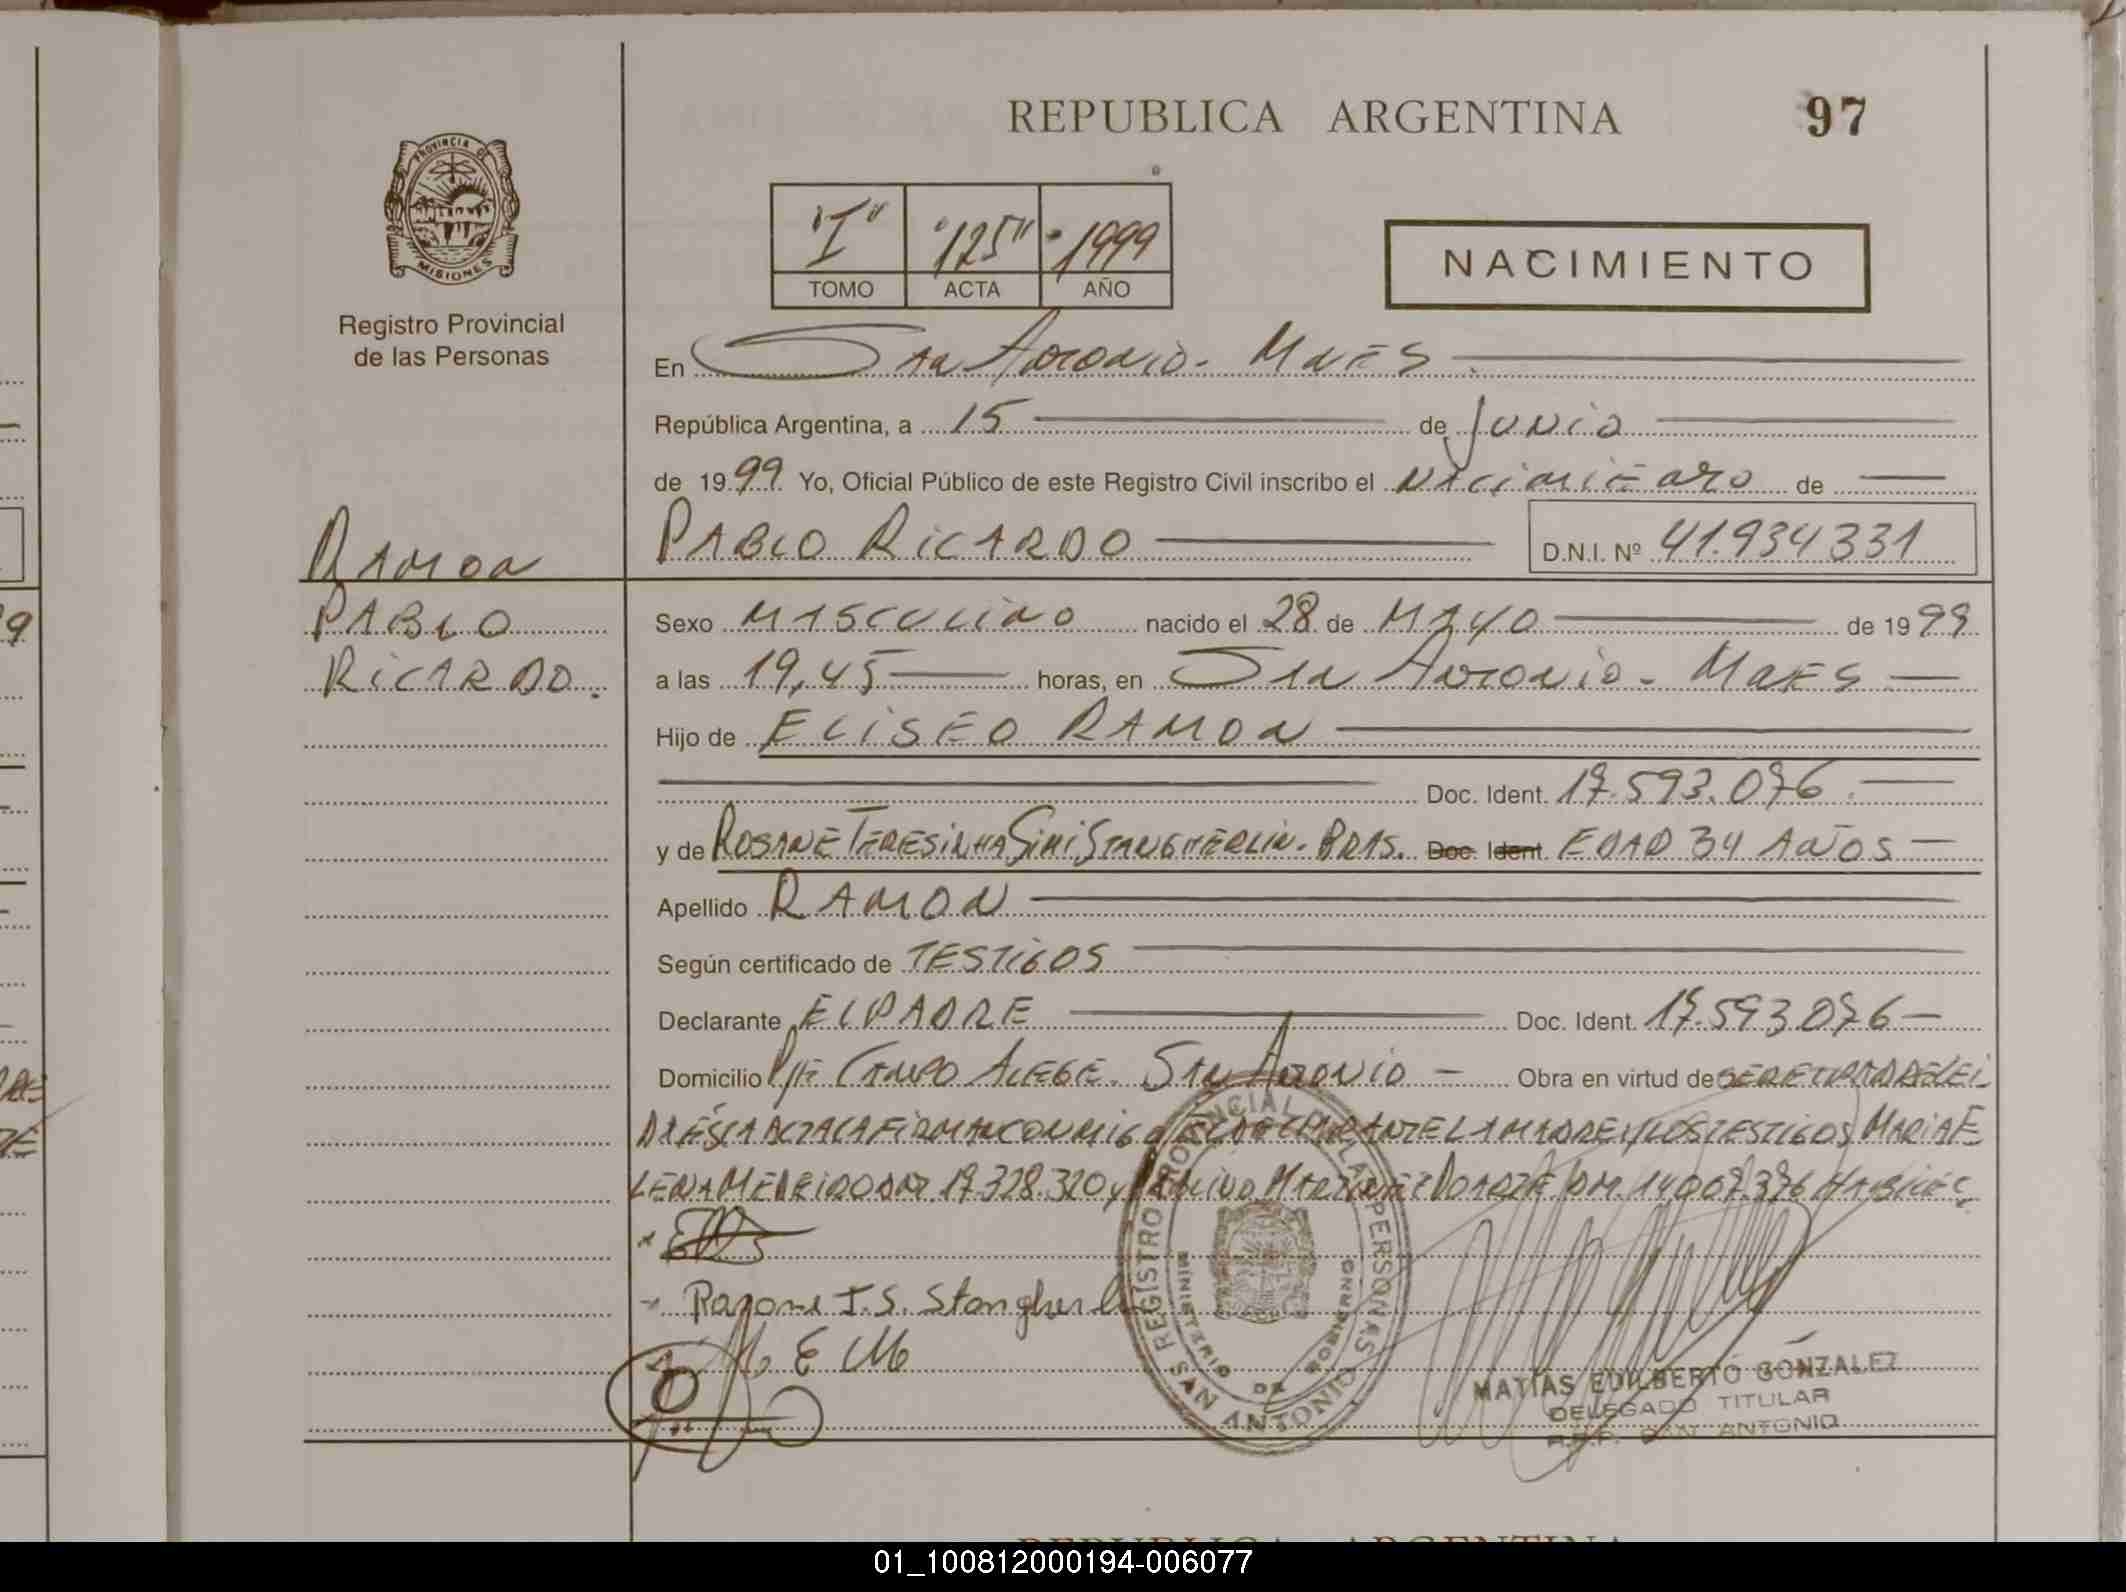 REPUBLICA ARGENTINA
97
PROVINCIA DE
MISIONES
Registro Provincial
de las Personas
"I" "125" 1999
TOMO ACTA AÑO
NACIMIENTO
En San Antonio - Mnes
República Argentina, a 15 de Junio
de 1999 Yo, Oficial Público de este Registro Civil inscribo el Nacimiento de
RAMON
PABLO RICARDO D.N.I. Nº 41.934331
PABLO
RICARDO.
Sexo MASCULINO nacido el 28 de MAYO de 1999
a las 19,45 horas, en San Antonio - Mnes
Hijo de ELISEO RAMON
Doc. Ident. 17.593.076
y de ROSANE TERESINHA SIMI STANGHERLIN. BRAS. Doc. Ident. EDAD 34 AÑOS
Apellido RAMON
Según certificado de TESTIGOS
Declarante EL PADRE Doc. Ident. 17.593076
Domicilio Pje CAMPO ALEGE. SAN ANTONIO Obra en virtud de SER EL PADRE LEI
DA ESTA ACTA LA FIRMAN CONMIGO EL DECLARANTE LA MADRE Y LOS TESTIGOS MARIA E
LENA 17.328.320 y MARTINEZ DUARTE 14.007.376
Rozane T.S. Stangherlin
M. E M
REGISTRO PROVINCIAL DE LAS PERSONAS
MINISTERIO DE GOBIERNO
SAN ANTONIO
MATIAS EDILBERTO GONZALEZ
DELEGADO TITULAR
R.P.P. SAN ANTONIO
REPUBLICA ARGENTINA
01_100812000194-006077